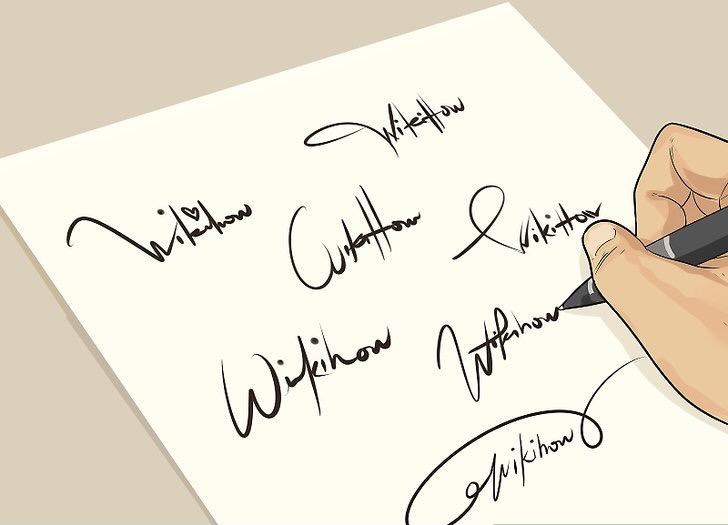 WikiHow
Wikihow WikiHow WikiHow
Wikihow Wikihow
Wikihow